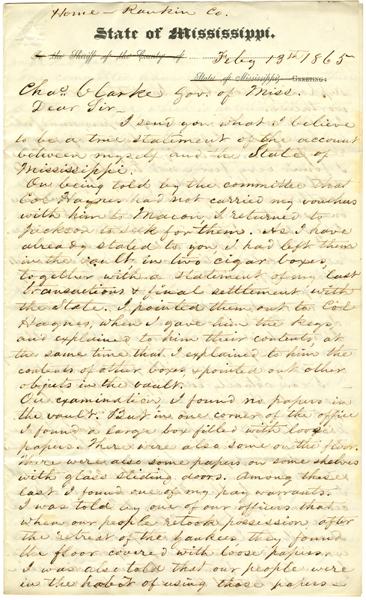 Home - Rankin Co.
State of Mississippi.
To the Sheriff of the County of Feby 13th 1865
State of Mississippi, GREETING:
Chas Clarke Gov. of Miss.
Dear Sir_
I send you what I believe
to be a true statement of the account
between myself and the State of
Mississippi.
On being told by the committee that
Col Haynes had not carried my vouchers
with him to Macon, I returned to
Jackson to seek for them. As I have
already stated to you I had left them
in the vault in two cigar boxes,
together with a statement of my last
transactions & final settlement with
the State. I pointed them out to Col
Haynes, when I gave him the keys,
and explained to him their contents, at
the same time that I explained to him the
contents of other boxes & pointed out other
objects in the vault.
On examination, I found no papers in
the vault. But in one corner of the office
I found a large box filled with loose
papers. There were also some on the floor.
There were also some papers on some shelves
with glass sliding doors. Among these
last I found one of my pay warrants.
I was told by one of our officers that
when our people retook possession after
the retreat of the Yankees they found
the floor covered with loose papers.
I was also told that our people were
in the habit of using those papers